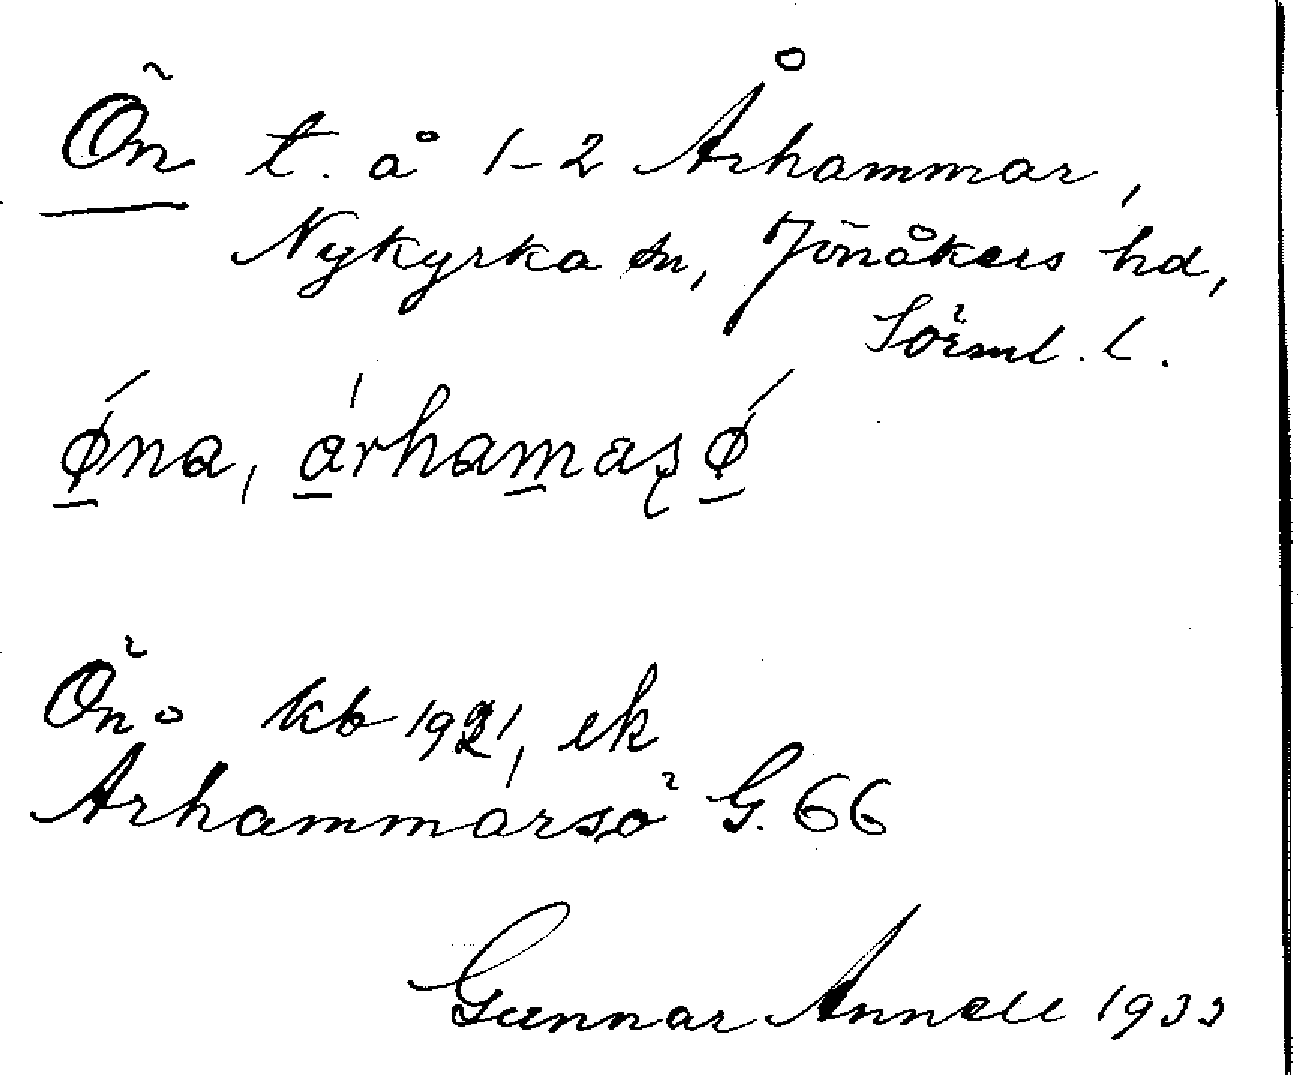 Ön t. å 1-2 Århammar,
Nykyrka sn, Jönåkers hd,
Sörml. l.
ǿna, árhamaʂǿ
Ön. kb 1921, ek
Arhammarsö G. 66
Gunnar Annell 1933